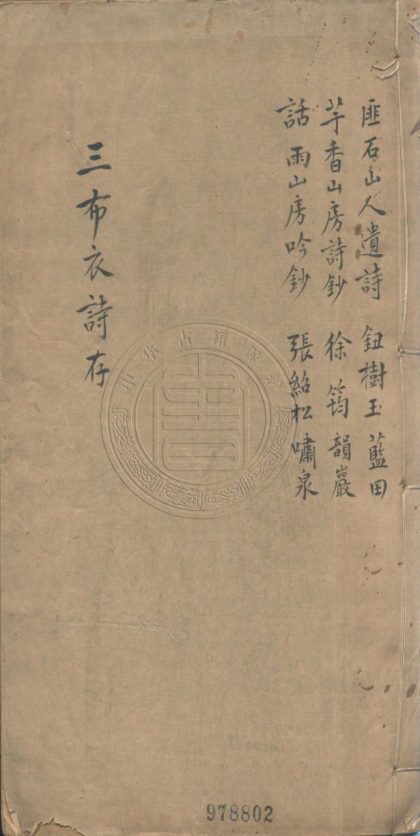 匪石山人遺詩 鈕樹玉 藍田
芋香山房詩鈔 徐筠 韻巖
話雨山房吟鈔 張紹松 嘯泉
三布衣詩存
978802